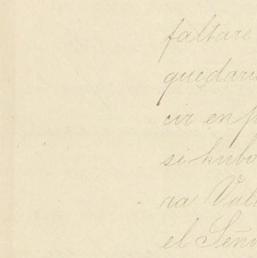 faltare
quedara
cir en p
si hubo
ra Val
el Seño